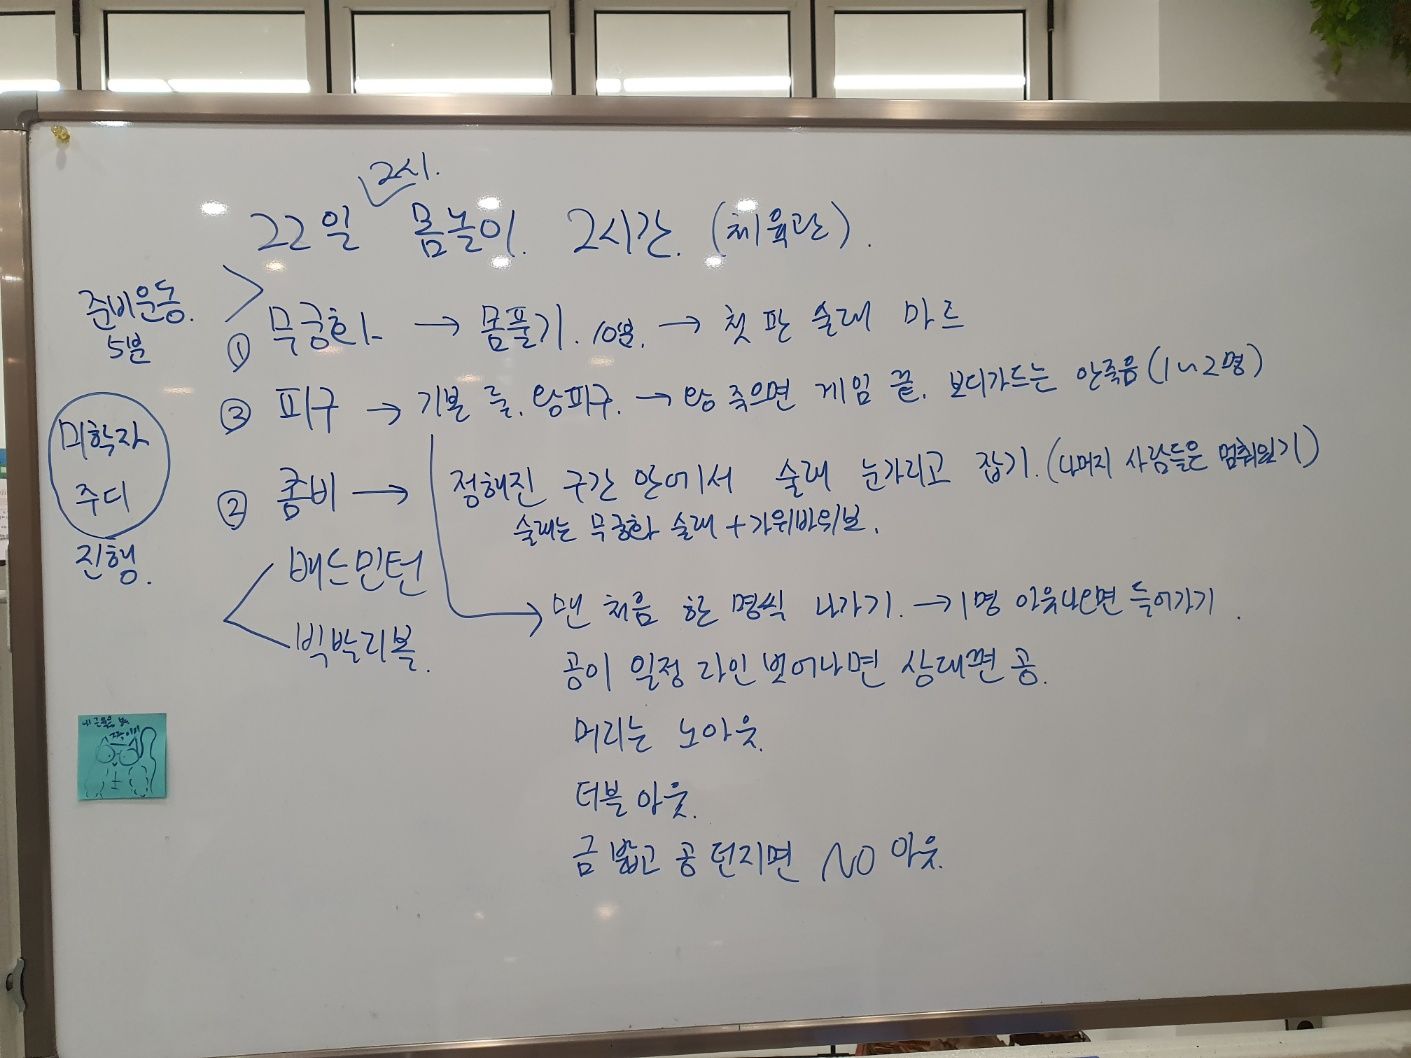 2시.
22일 몸놀이. 2시간. (체육관).
준비운동.
5분
① 무궁화 → 몸풀기. 10분. → 첫 판 술래 마르
③ 피구 → 기본 룰. 왕피구. → 왕 죽으면 게임 끝. 보디가드는 안죽음 (1~2명)
미학자
주디
진행.
② 좀비 → 정해진 구간 안에서 술래 눈가리고 잡기. (나머지 사람들은 멈춰있기)
술래는 무궁화 술래 + 가위바위보.
배드민턴
빅발리볼.
맨 처음 한 명씩 나가기. → 1명 아웃되면 들어가기.
공이 일정 라인 벗어나면 상대편 공.
머리는 노아웃.
더블 아웃.
금 밟고 공 던지면 NO 아웃.